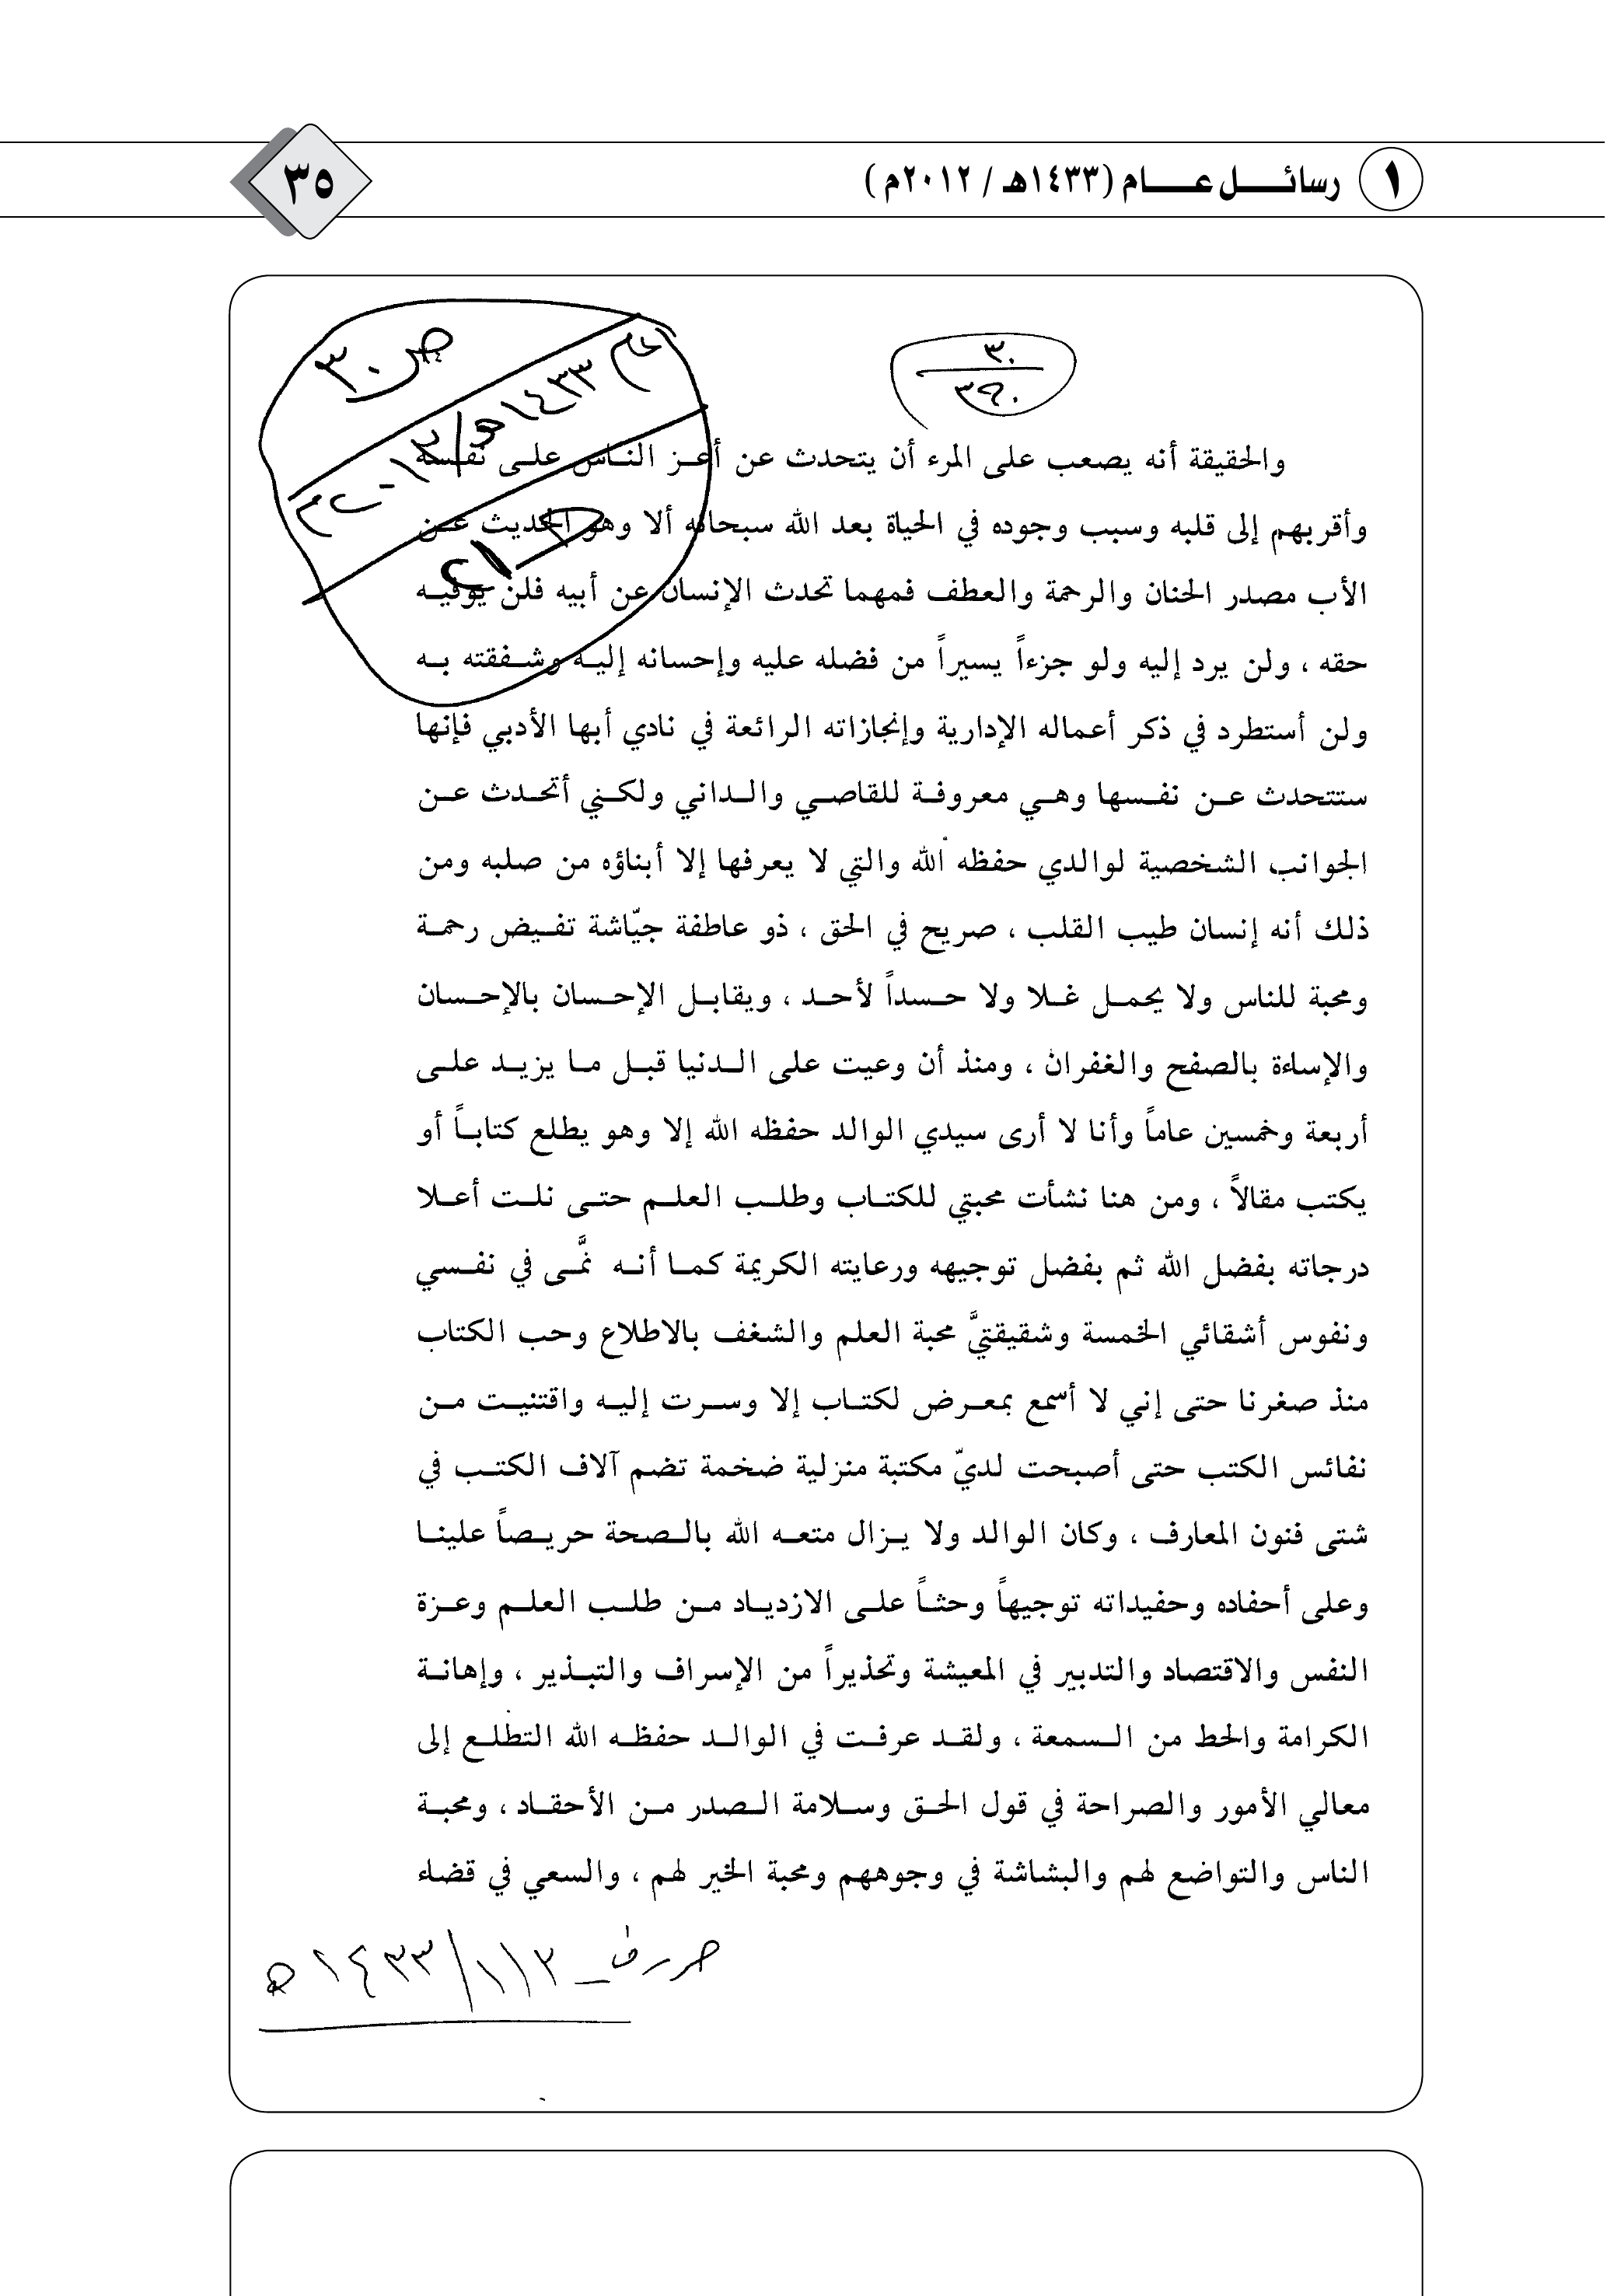 ١ رسائل عام (١٤٣٣هـ / ٢٠١٢م)
٣٥
ص ٣٠
عام ١٤٣٣هـ/٢٠١٢م
٣٠
٣٩٠
والحقيقة أنه يصعب على المرء أن يتحدث عن أعز الناس على نفسه
وأقربهم إلى قلبه وسبب وجوده في الحياة بعد الله سبحانه ألا وهو الحديث عن
الأب مصدر الحنان والرحمة والعطف فمهما تحدث الإنسان عن أبيه فلن يوفيه
حقه ، ولن يرد إليه ولو جزءاً يسيراً من فضله عليه وإحسانه إليه وشفقته به
ولن أستطرد في ذكر أعماله الإدارية وإنجازاته الرائعة في نادي أبها الأدبي فإنها
ستتحدث عن نفسها وهي معروفة للقاصي والداني ولكني أتحدث عن
الجوانب الشخصية لوالدي حفظه الله والتي لا يعرفها إلا أبناؤه من صلبه ومن
ذلك أنه إنسان طيب القلب ، صريح في الحق ، ذو عاطفة جيّاشة تفيض رحمة
ومحبة للناس ولا يحمل غلا ولا حسداً لأحد ، ويقابل الإحسان بالإحسان
والإساءة بالصفح والغفران ، ومنذ أن وعيت على الدنيا قبل ما يزيد على
أربعة وخمسين عاماً وأنا لا أرى سيدي الوالد حفظه الله إلا وهو يطلع كتاباً أو
يكتب مقالاً ، ومن هنا نشأت محبتي للكتاب وطلب العلم حتى نلت أعلا
درجاته بفضل الله ثم بفضل توجيهه ورعايته الكريمة كما أنه نمَّى في نفسي
ونفوس أشقائي الخمسة وشقيقتيَّ محبة العلم والشغف بالاطلاع وحب الكتاب
منذ صغرنا حتى إني لا أسمع بمعرض لكتاب إلا وسرت إليه واقتنيت من
نفائس الكتب حتى أصبحت لديّ مكتبة منزلية ضخمة تضم آلاف الكتب في
شتى فنون المعارف ، وكان الوالد ولا يزال متعه الله بالصحة حريصاً علينا
وعلى أحفاده وحفيداته توجيهاً وحثاً على الازدياد من طلب العلم وعزة
النفس والاقتصاد والتدبير في المعيشة وتحذيراً من الإسراف والتبذير ، وإهانة
الكرامة والحط من السمعة ، ولقد عرفت في الوالد حفظه الله التطلع إلى
معالي الأمور والصراحة في قول الحق وسلامة الصدر من الأحقاد ، ومحبة
الناس والتواضع لهم والبشاشة في وجوههم ومحبة الخير لهم ، والسعي في قضاء
١٤٣٣/١/٢ه